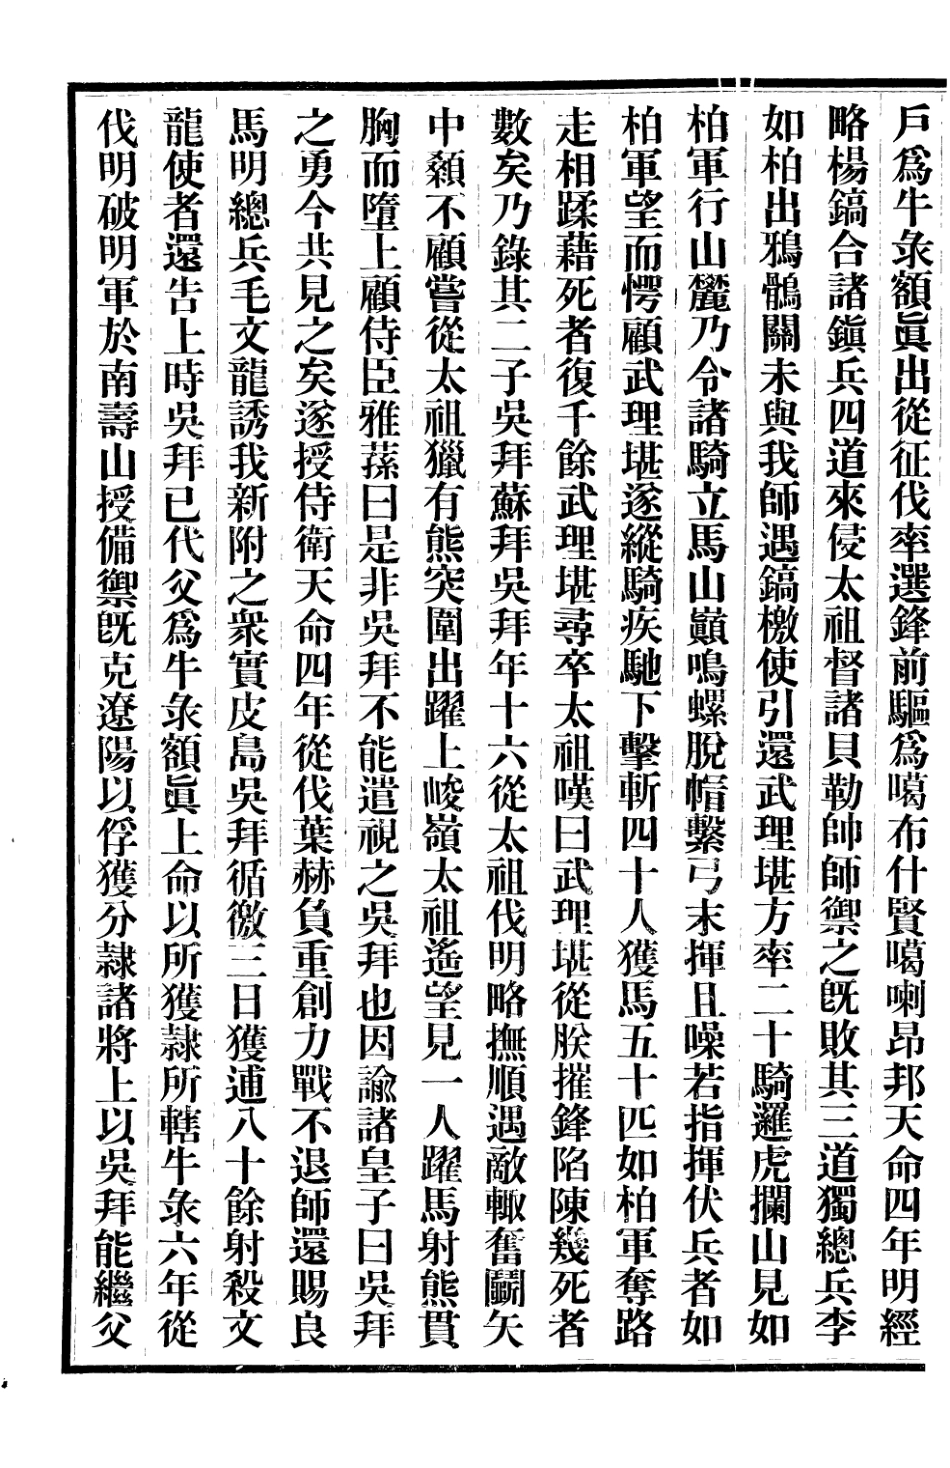 戶爲牛彔額眞出從征伐率選鋒前驅爲噶布什賢噶喇昂邦天命四年明經
略楊鎬合諸鎭兵四道來侵太祖督諸貝勒帥師禦之旣敗其三道獨總兵李
如柏出鴉鶻關未與我師遇鎬檄使引還武理堪方率二十騎邏虎攔山見如
柏軍行山麓乃令諸騎立馬山巔鳴螺脫帽繫弓末揮且噪若指揮伏兵者如
柏軍望而愕顧武理堪遂縱騎疾馳下擊斬四十人獲馬五十匹如柏軍奪路
走相蹂藉死者復千餘武理堪尋卒太祖嘆曰武理堪從朕摧鋒陷陳幾死者
數矣乃錄其二子吳拜蘇拜吳拜年十六從太祖伐明略撫順遇敵輒奮鬭矢
中顙不顧嘗從太祖獵有熊突圍出躍上峻嶺太祖遙望見一人躍馬射熊貫
胸而墮上顧侍臣雅蓀曰是非吳拜不能遣視之吳拜也因諭諸皇子曰吳拜
之勇今共見之矣遂授侍衛天命四年從伐葉赫負重創力戰不退師還賜良
馬明總兵毛文龍誘我新附之衆實皮島吳拜循徼三日獲逋八十餘射殺文
龍使者還告上時吳拜已代父爲牛彔額眞上命以所獲隷所轄牛彔六年從
伐明破明軍於南壽山授備禦旣克遼陽以俘獲分隷諸將上以吳拜能繼父